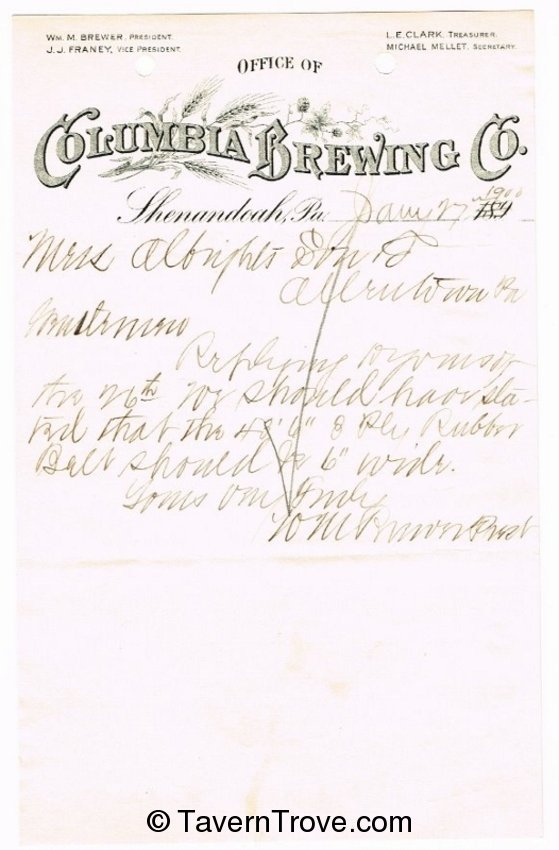 Wm. M. Brewer, President.
J. J. Franey, Vice President.
L. E. Clark, Treasurer.
Michael Mellet, Secretary.
Office of
Columbia Brewing Co.
Shenandoah, Pa. Jan 27 1900
Mess Albrights Son &
Allentown Pa
Gentlemen
Replying to yours of
the 26th we should have sta-
ted that the 6" 8 Ply Rubber
Belt should be 6" wide.
Yours Truly
W M Brewer Prest
© TavernTrove.com